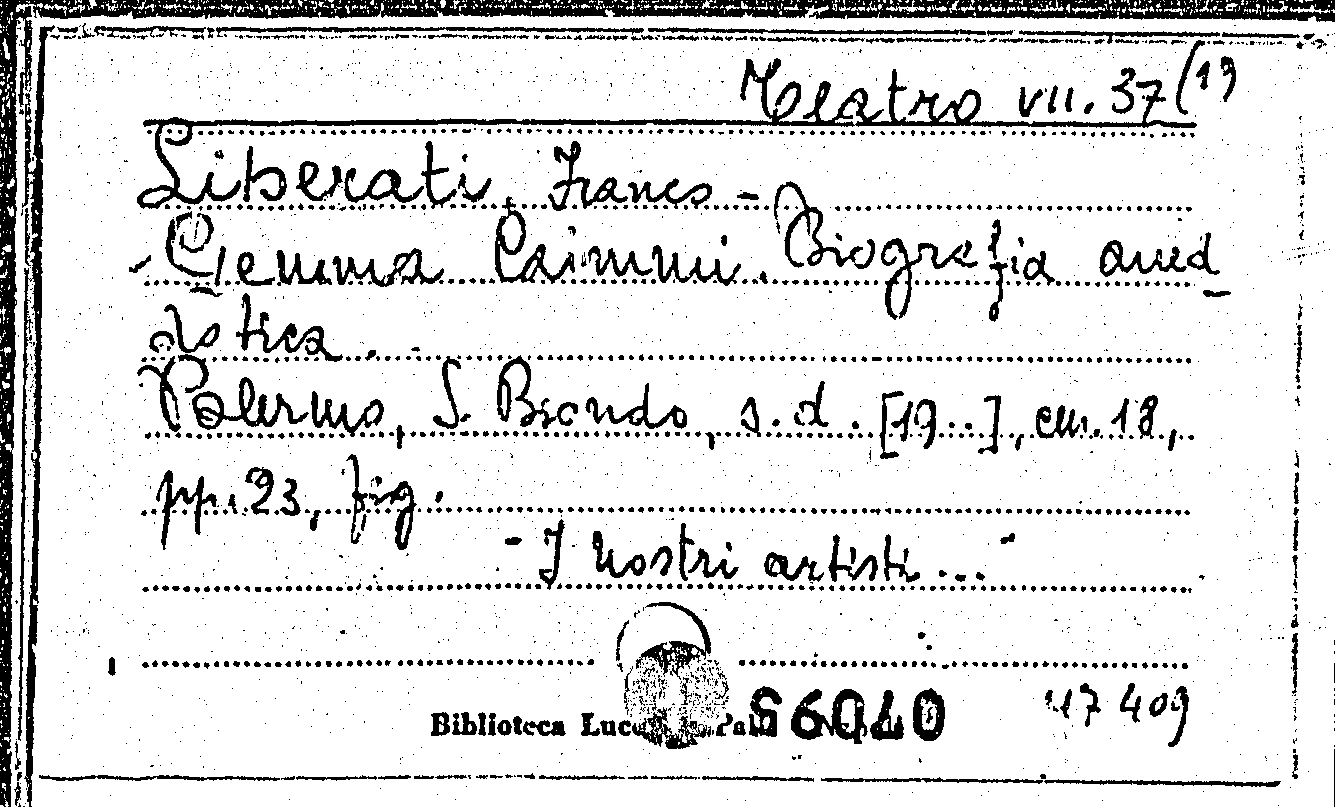 Teatro VII. 37 (19
Liberati, Franco -
Gemma Caimmi. Biografia aned
dotica.
Palermo, S. Biondo, s.d. [19..], cm. 18,
pp. 23, fig.
"I nostri artisti..."
Biblioteca
47 409